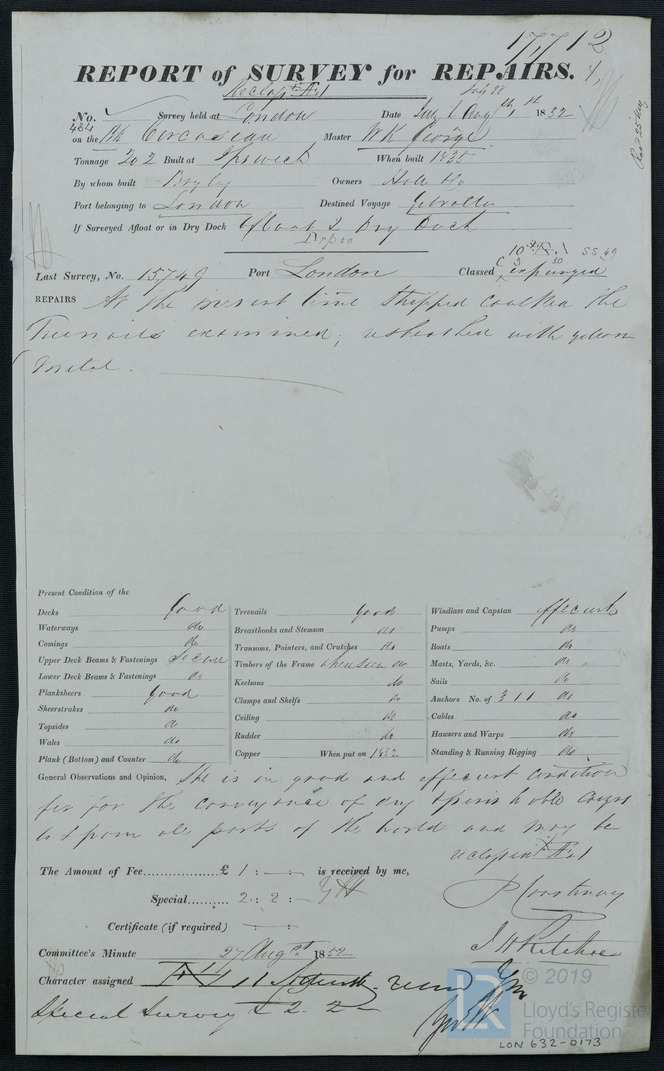 17712
REPORT of SURVEY for REPAIRS.
No. 464 Survey held at London Date Augst 1852
on the Bk Circassian Master W K George
Tonnage 202 Built at Ipswich When built 1835
By whom built Bayley Owners Holl &Co
Port belonging to London Destined Voyage Gibraltar
If Surveyed Afloat or in Dry Dock Afloat & Dry Dock
Last Survey, No. 15749 Port London Classed expunged
REPAIRS At the present time Stripped Caulked the
Treenails examined, resheathed with yellow
Metal.
Present Condition of the
Decks Good
Waterways do
Comings do
Upper Deck Beams & Fastenings Secure
Lower Deck Beams & Fastenings do
Planksheers Good
Sheerstrakes do
Topsides do
Wales do
Plank (Bottom) and Counter do
Treenails Good
Breasthooks and Stemson do
Transoms, Pointers, and Crutches do
Timbers of the Frame when seen do
Keelsons do
Clamps and Shelfs do
Ceiling do
Rudder do
Copper When put on 1852
Windlass and Capstan efficient
Pumps do
Boats do
Masts, Yards, &c. do
Sails do
Anchors No. of 3 1 1 do
Cables do
Hawsers and Warps do
Standing & Running Rigging do
General Observations and Opinion, She is in good and efficient condition
fit for the conveyance of dry & perishable Cargoes
to & from all parts of the world and may be
The Amount of Fee £ 1 : — : — is received by me,
Special 2 : 2 : —
Certificate (if required) — : —
Committee's Minute 27 Augst 1852
Character assigned
Special Survey £ 2. 2 —
© 2019
Lloyd's Register
Foundation
LON 632-0173